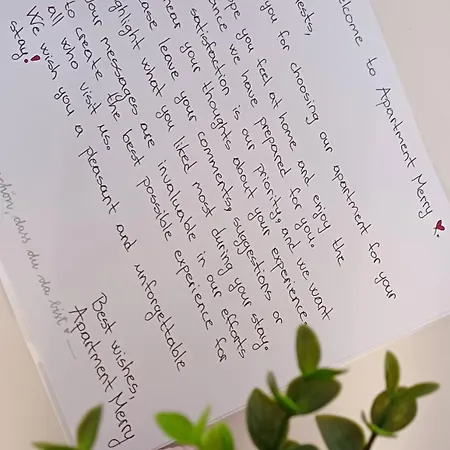 lcome to Apartment Merry
ests,
you for choosing our apartment for your
pe you feel at home and enjoy the
ence we have prepared for you.
satisfaction is our priority, and we want
hear your thoughts about your experience.
ase leave your comments, suggestions or
ghlight what you liked most during your stay.
our messages are invaluable in our efforts
to create the best possible experience for
all who visit us.
We wish you a pleasant and unforgettable
stay!
Best wishes,
Apartment Merry
schön, dass du da bist